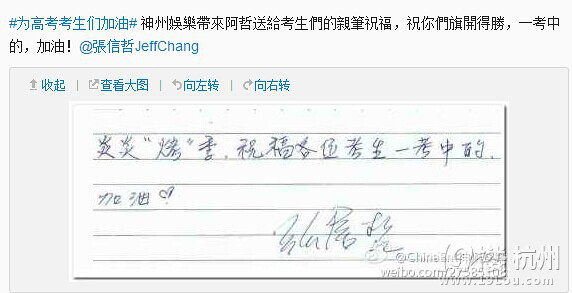 #为高考考生们加油# 神州娛樂帶來阿哲送給考生們的親筆祝福，祝你們旗開得勝，一考中
的，加油！@張信哲JeffChang
收起 查看大图 向左转 向右转
炎炎“烤”季，祝福各位考生一考中的，
加油♡
张信哲
19楼 杭州
www.19lou.com